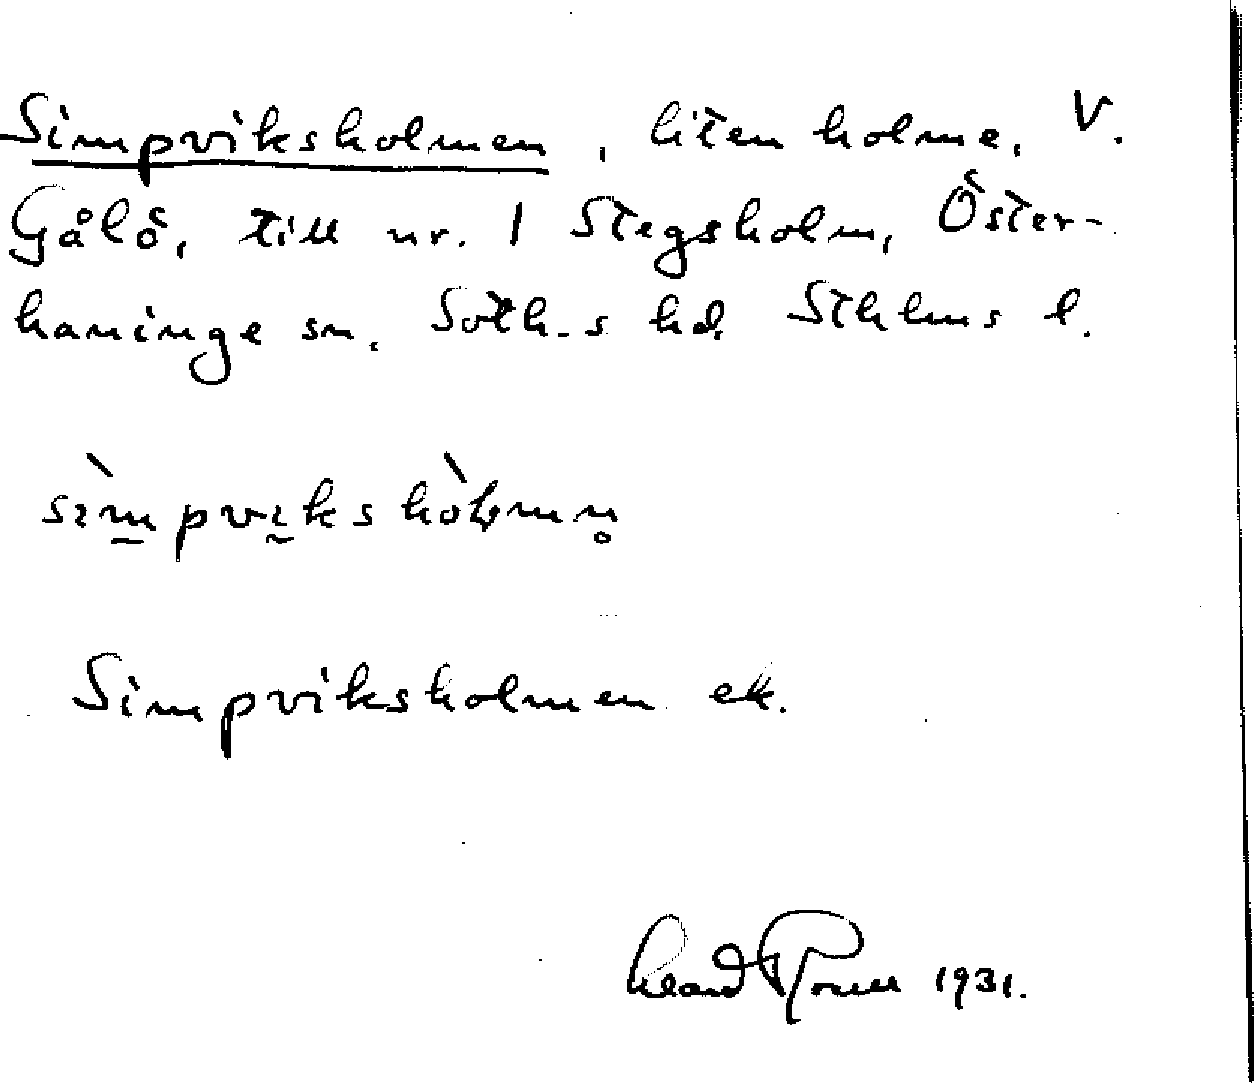 Simpviksholmen, liten holme, V.
Gålö, till nr. 1 Stegsholm, Öster-
haninge sn. Soth-s hd. Sthlms l.
sìmpvikshòlmn̥
Simpviksholmen ek.
1931.